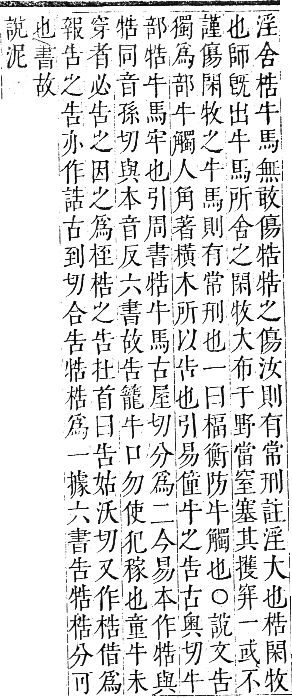 淫舍梏牛馬無敢傷牿牿之傷汝則有常刑註淫大也梏閑牧
也師旣出牛馬所舍之閑牧大布于野當窒塞其擭穽一或不
謹傷閑牧之牛馬則有常刑也一曰楅衡防牛觸也○說文告
獨爲部牛觸人角著橫木所以告也引易僮牛之告古奧切牛
部牿牛馬牢也引周書牿牛馬古屋切分爲二今易本作牿與
牿同音孫切與本音反六書故告籠牛口勿使犯稼也童牛未
穿者必告之因之爲桎梏之告扗首曰告姑沃切又作梏借爲
報告之告亦作誥古到切合告牿梏爲一據六書告牿梏分可
也書故
說泥